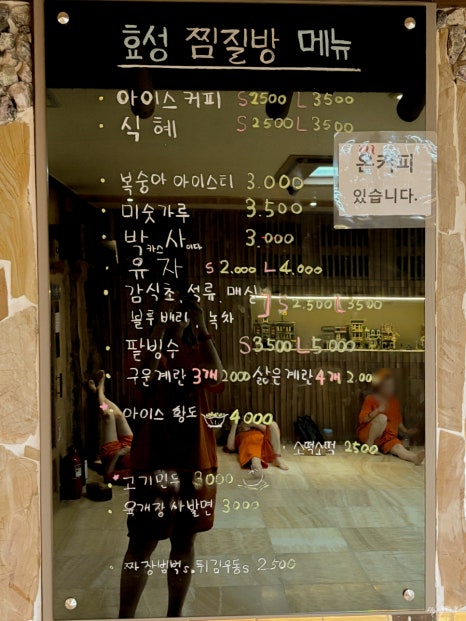 효성 찜질방 메뉴
· 아이스 커피 S 2500 L 3500
· 식혜 S 2500 L 3500
온커피
있습니다.
· 복숭아 아이스티 3.000
· 미숫가루 3.500
· 박카스 사이다 3.000
· 유자 S 2.000 L 4.000
· 감식초, 석류, 매실 S 2.500 L 3500
블루베리, 녹차
· 팥빙수 S 3500 L 5,000
· 구운계란 3개 2000 삶은계란 4개 2.00
· 아이스 황도 4000
· 소떡소떡 2500
· 고기만두 3000
· 육개장 사발면 3000
· 짜장범벅s. 튀김우동s 2500